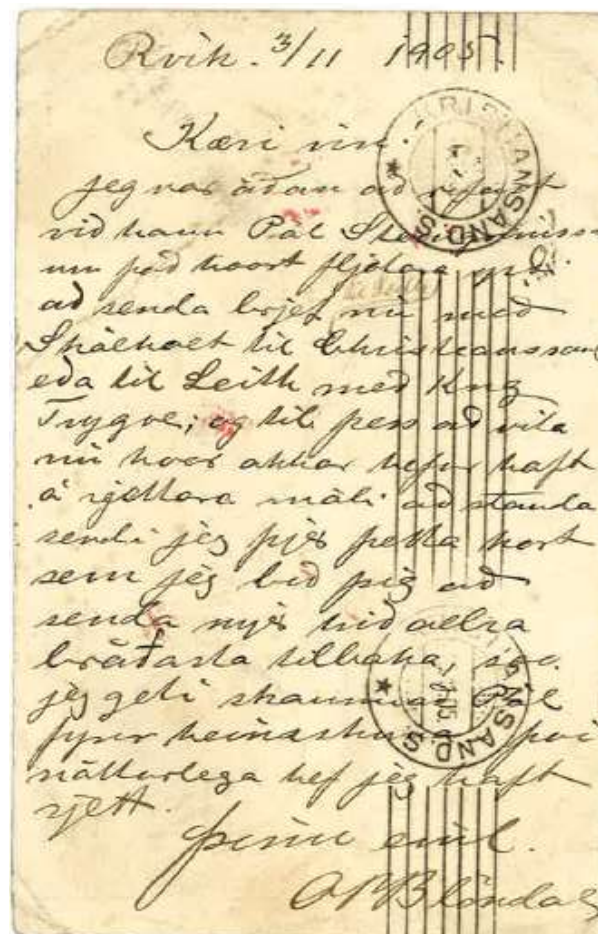 Rvik. 3/11 1905.
Kæri vin!
jeg var áðan að rífast
við hann Pál
um það hvort fljótara
að senda brjef nú með
Skálholt til Christianssand
eða til Leith með Kng
Trygve; og til þess að vita
nú hvor okkar hefur haft
á rjettara máli að standa
sendi jeg þjer þetta kort
sem jeg bið þig að
senda mjer við allra
bráðasta tilbaka, svo
jeg geti skammað Pál
fyrir því
náttúrlega hef jeg haft
rjett.
þinn einl.
Blöndal
KRISTIANSAND.S.